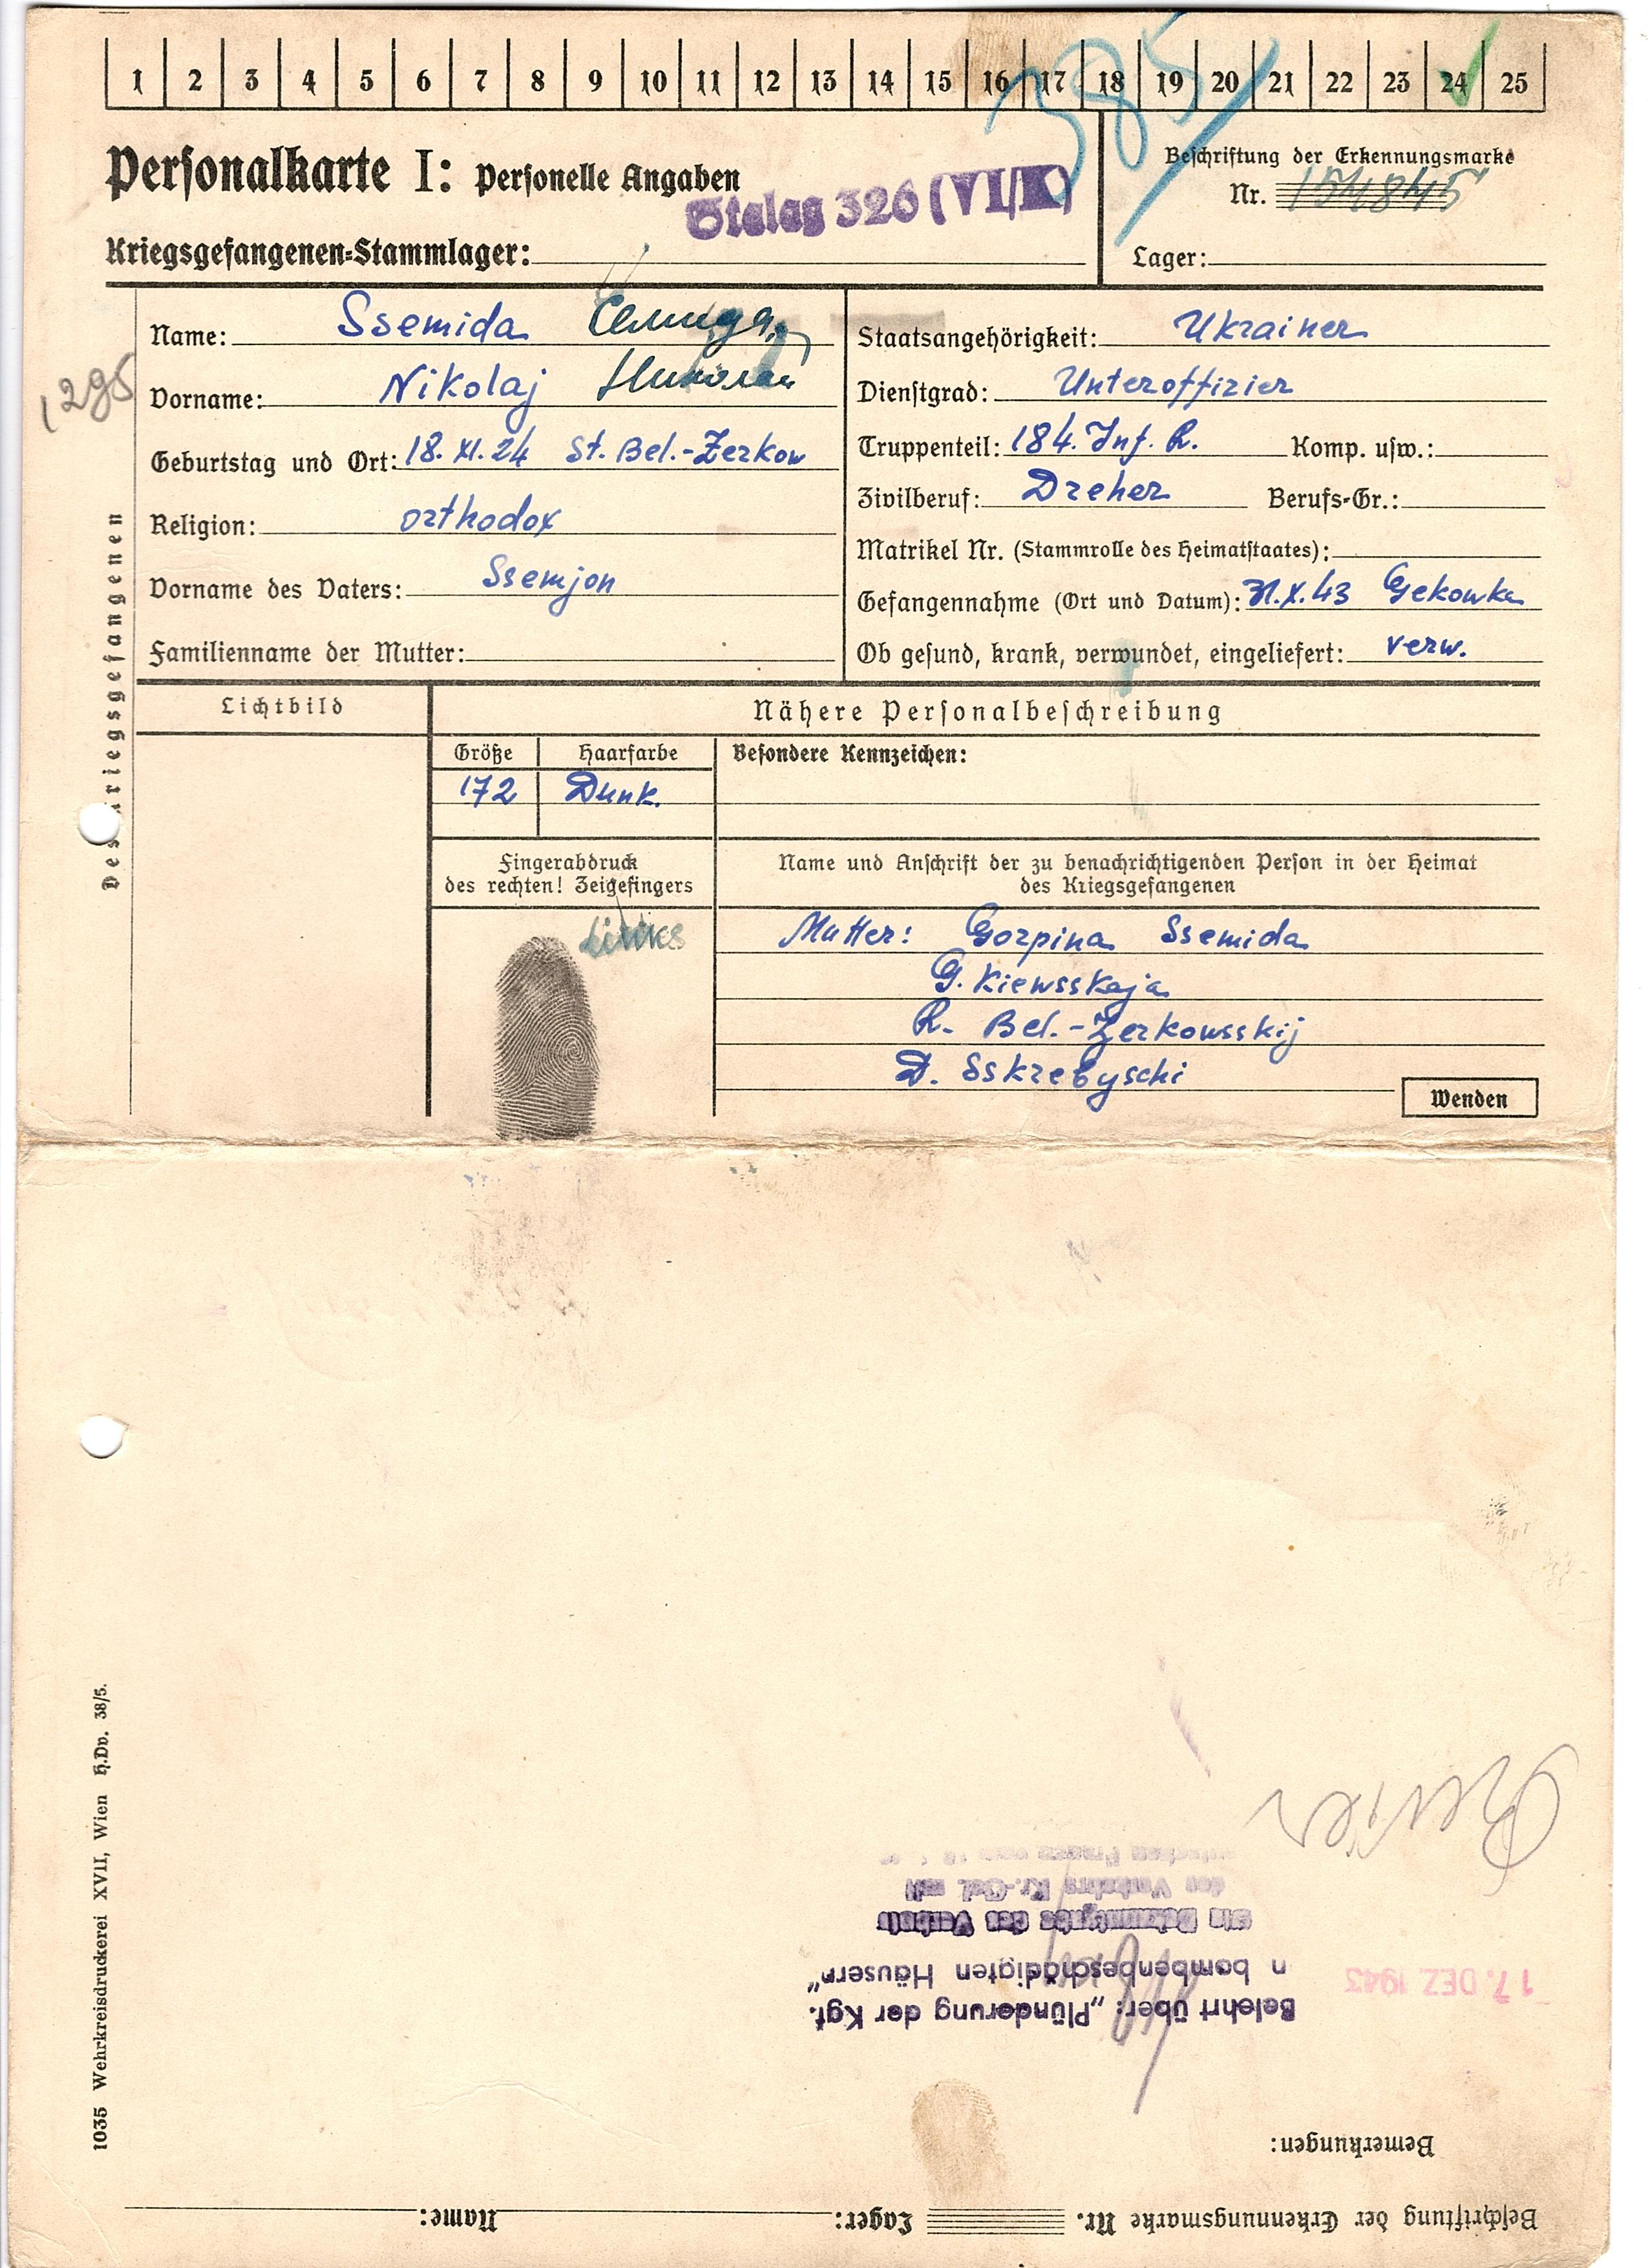 1 2 3 4 5 6 7 8 9 10 11 12 13 14 15 16 17 18 19 20 21 22 23 24 25
385
Personalkarte I: Personelle Angaben
Stalag 326 (VI/K)
Kriegsgefangenen-Stammlager:
Beschriftung der Erkennungsmarke
Nr.
Lager:
Des Kriegsgefangenen
Name: Ssemida Семида
Vorname: Nikolaj Николай
Geburtstag und Ort: 18. XI. 24 St. Bel.-Zerkow
Religion: orthodox
Vorname des Vaters: Ssemjon
Familienname der Mutter:
Staatsangehörigkeit: Ukrainer
Dienstgrad: Unteroffizier
Truppenteil: 184. Inf. R. Komp. usw.:
Zivilberuf: Dreher Berufs-Gr.:
Matrikel Nr. (Stammrolle des Heimatstaates):
Gefangennahme (Ort und Datum): 31.X.43 Gekowka
Ob gesund, krank, verwundet, eingeliefert: verw.
Lichtbild
Nähere Personalbeschreibung
Größe Haarfarbe Besondere Kennzeichen:
172 Dunk.
Fingerabdruck
des rechten! Zeigefingers
Links
Name und Anschrift der zu benachrichtigenden Person in der Heimat
des Kriegsgefangenen
Mutter: Gorpina Ssemida
G. Kiewsskaja
R. Bel.-Zerkowsskij
D. Sskrebyschi
Wenden
1035 Wehrkreisdruckerei XVII, Wien H.Dv. 38/5.
Beschriftung der Erkennungsmarke Nr. Lager: Name:
Bemerkungen:
Belehrt über: „Plünderung der Kgf.
n bombenbeschädigten Häusern"
17. DEZ 1943
des Verbots